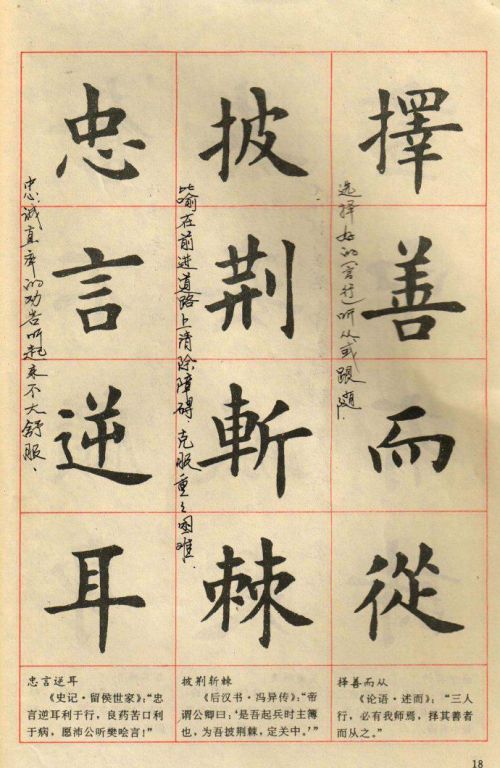 擇善而從
选择好的(言行)听从或跟随.
披荆斬棘
比喻在前进道路上清除障碍.克服重重困难.
忠言逆耳
忠诚直率的劝告听起来不大舒服.
择善而从
《论语·述而》:“三人
行，必有我师焉，择其善者
而从之。”
披荆斩棘
《后汉书·冯异传》:“帝
谓公卿曰:‘是吾起兵时主簿
也，为吾披荆棘，定关中。’”
忠言逆耳
《史记·留侯世家》:“忠
言逆耳利于行，良药苦口利
于病，愿沛公听樊哙言!”
18